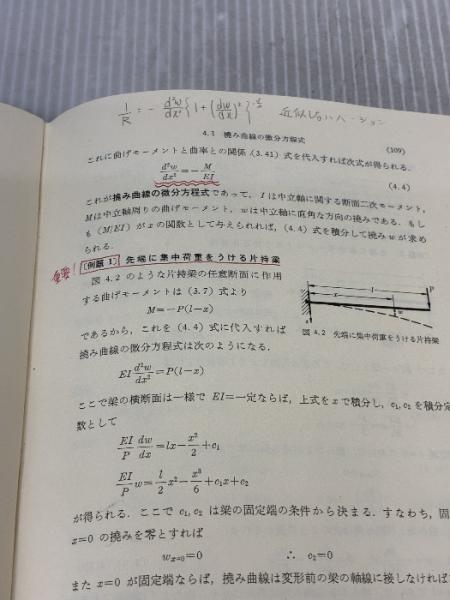 1/R = - d²w/dx² {1 + (dw/dx)²}^-3/2 近似しないバージョン
4.1 撓み曲線の微分方程式 (109)
これに曲げモーメントと曲率との関係 (3.41) 式を代入すれば次式が得られる.
d²w/dx² = - M/EI (4.4)
これが撓み曲線の微分方程式であって, I は中立軸に関する断面二次モーメント,
Mは中立軸周りの曲げモーメント, wは中立軸に直角な方向の撓みである. もし
も (M/EI) がxの関数として与えられれば, (4.4) 式を積分して撓みwが求め
られる.
重要!
[例題 1] 先端に集中荷重をうける片持梁
図 4.2 のような片持梁の任意断面に作用
する曲げモーメントは (3.7) 式より
M=-P(l-x)
であるから, これを (4.4) 式に代入すれば
撓み曲線の微分方程式は次のようになる.
l
x
P
w
図 4.2 先端に集中荷重をうける片持梁
EI d²w/dx² = P(l-x)
ここで梁の横断面は一様で EI=一定ならば, 上式をxで積分し, c₁, c₂ を積分定
数として
EI/P dw/dx = lx - x²/2 + c₁
EI/P w = l/2 x² - x³/6 + c₁x + c₂
が得られる. ここで c₁, c₂ は梁の固定端の条件から決まる. すなわち, 固
x=0 の撓みを零とすれば
w_x=0 = 0 ∴ c₂=0
また x=0 が固定端ならば, 撓み曲線は変形前の梁の軸線に接しなければ